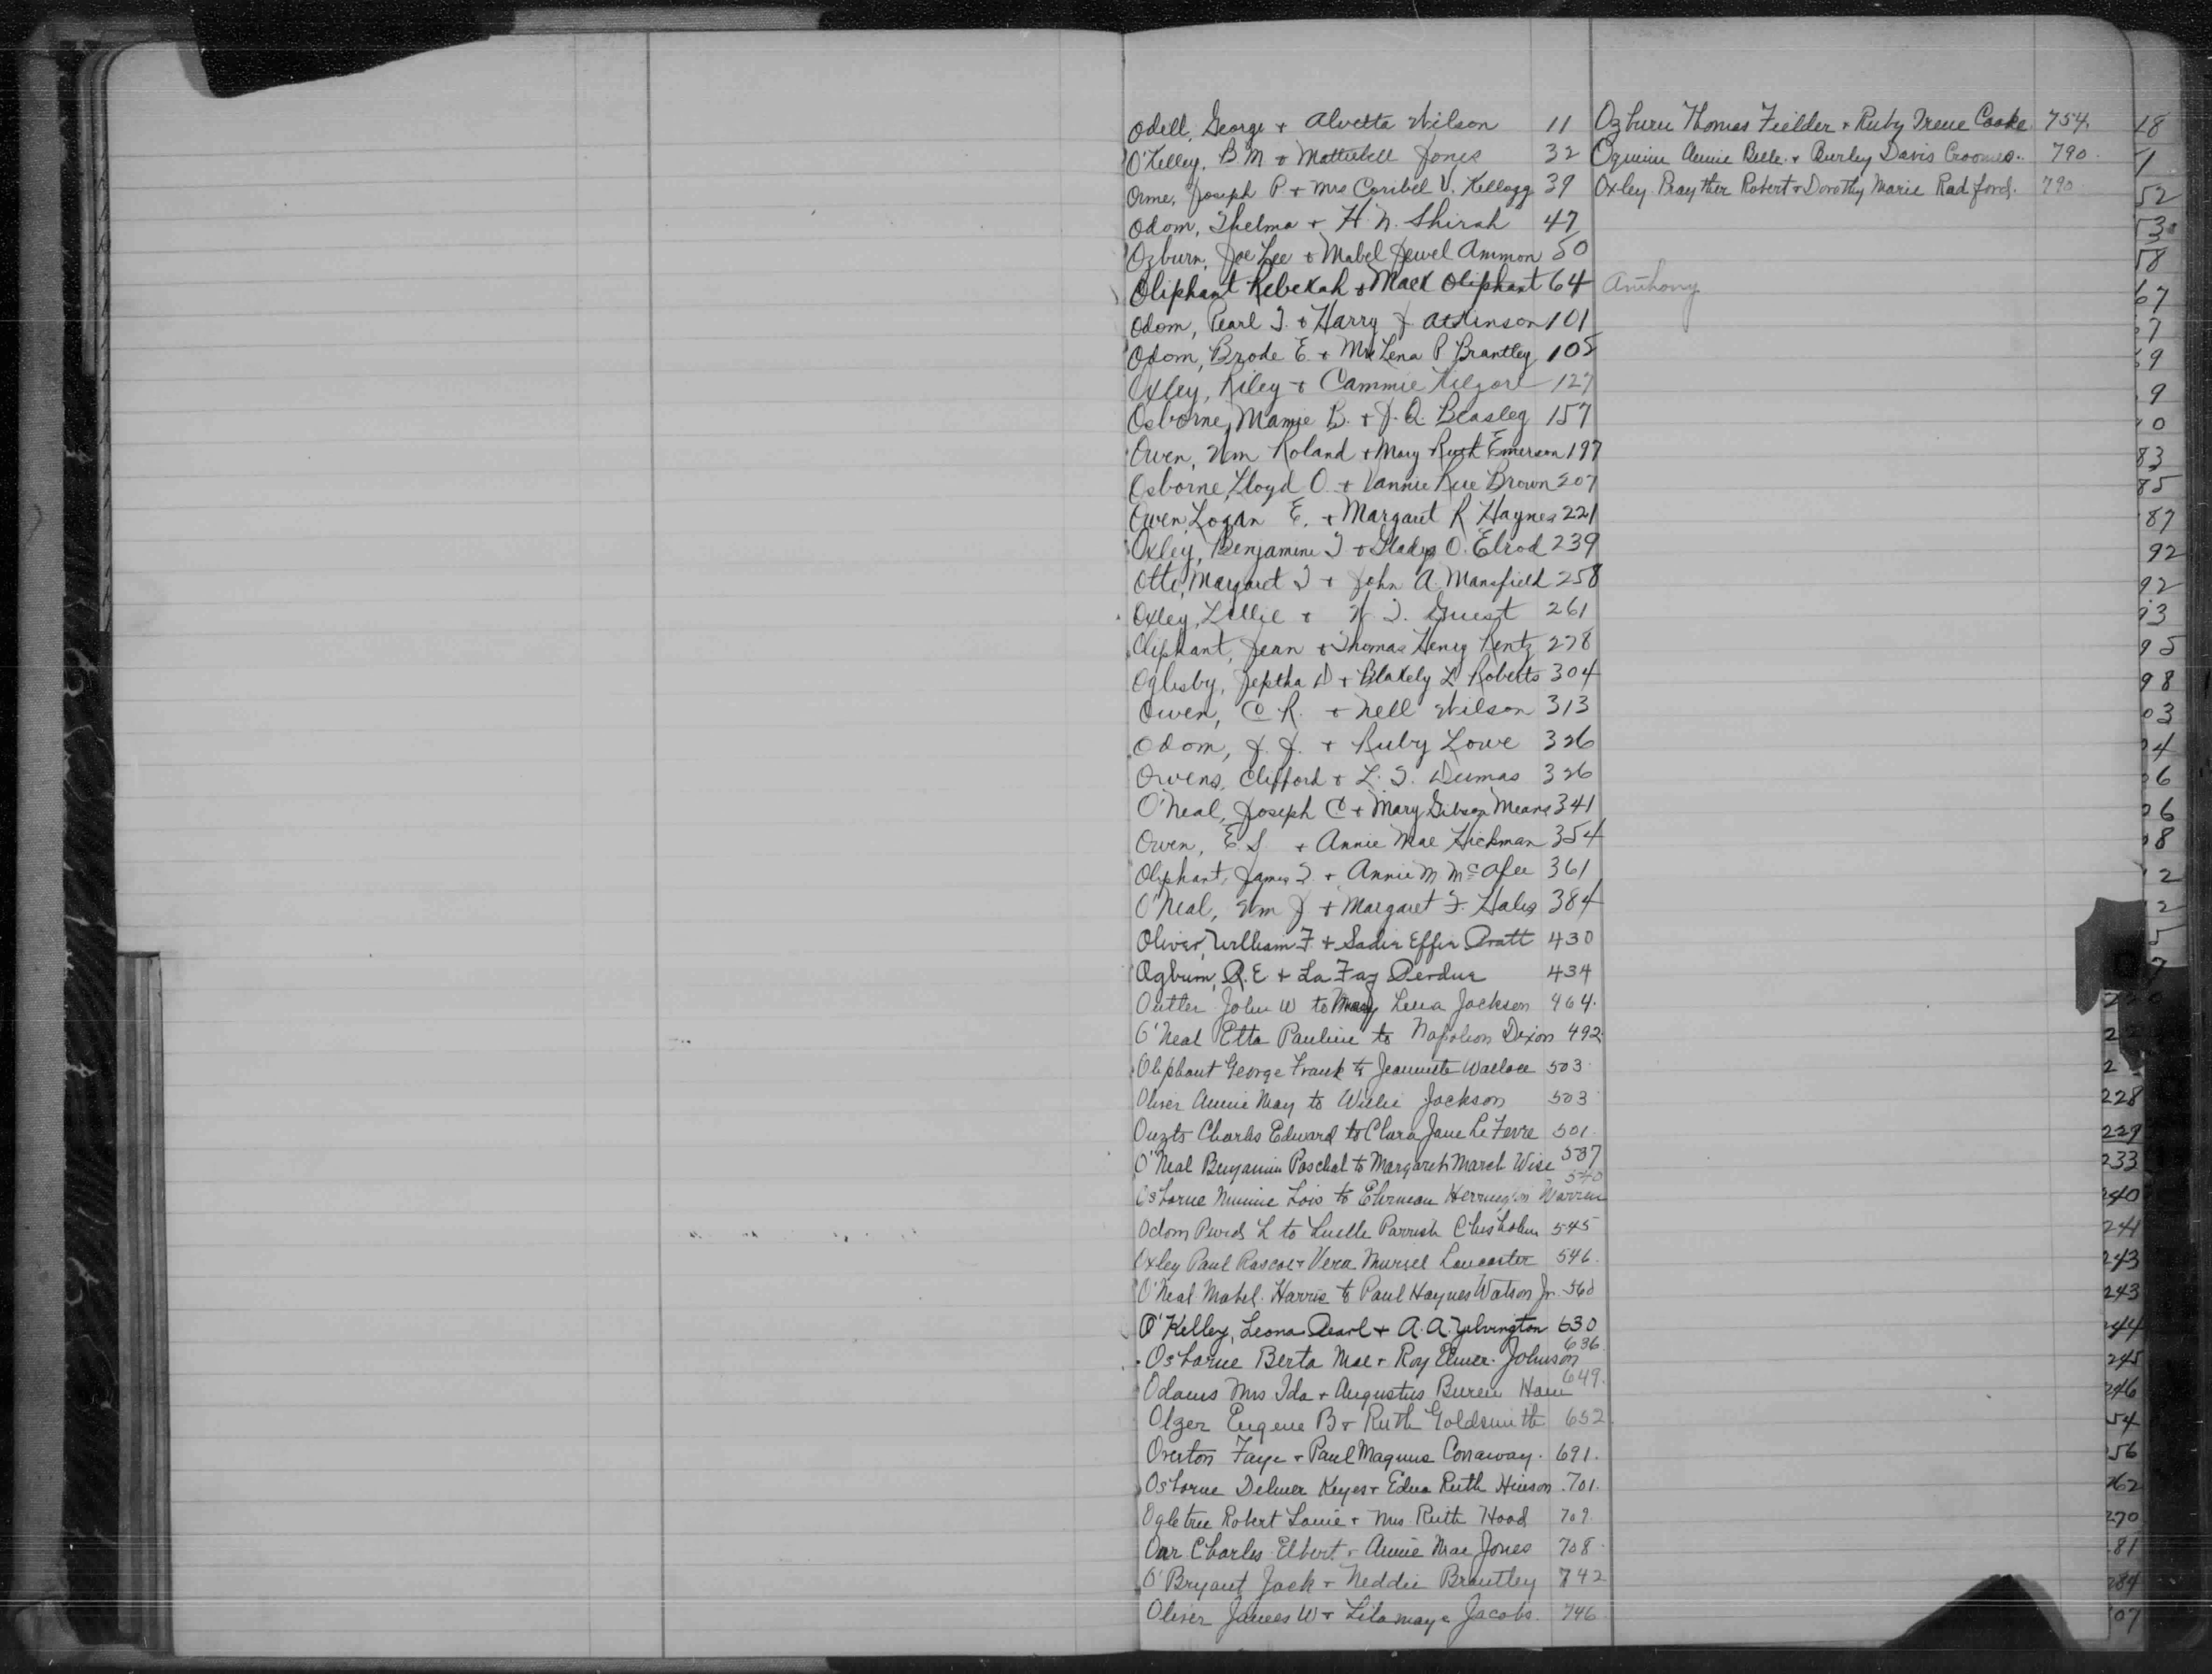 Odell, George + Alvetta Wilson 11
O'Kelley, B M + Mattiebell Jones 32
Orme, Joseph P + Mrs Coribel V. Kellogg 39
Odom, Thelma + H. N. Shirah 47
Ozburn, Joe Lee + Mabel Jewel Ammon 50
Oliphant Rebekah + Mack Oliphant 64
Odom, Pearl T. + Harry J. Atkinson 101
Odom, Brode E. + Mrs Lena P Brantley 105
Oxley, Riley + Cammie Kilgore 127
Osborne, Mamie B. + J. Q. Beasley 157
Owen, Wm Roland + Mary Ruth Emerson 197
Osborne, Lloyd O. + Vannie Rue Brown 207
Owen, Logan E. + Margaret R Haynes 221
Oxley, Benjamine T + Gladys O. Elrod 239
Otte, Margaret T + John A. Mansfield 258
Oxley, Lillie + W. T. Guest 261
Oliphant, Jean + Thomas Henry Rentz 278
Oglesby, Jeptha D + Blakely L Roberts 304
Owen, C R. + Nell Wilson 313
Odom, J. J. + Ruby Lowe 326
Owens, Clifford + L. T. Dumas 326
O'Neal, Joseph C + Mary Gibson Means 341
Owen, E S. + Annie Mae Hickman 354
Oliphant, James T. + Annie M McAfee 361
O'Neal, Wm J + Margaret F. Hales 384
Oliver, William F. + Sadie Effie Pratt 430
Ogburn, R. E + La Fay Perdue 434
Outler John W to Mary Lena Jackson 464.
O'Neal Etta Pauline to Napoleon Dixon 492
Oliphant George Frank to Jeannette Wallace 503
Oliver Annie May to Willie Jackson 503
Ouzts Charles Edward to Clara Jane Le Fevre 501.
O'Neal Benjamin Paschal to Margaret March Wise 537
Osborne Minnie Lois to Herrington Warren 540
Odom L to Luelle Parrish Chisholm 545
Oxley Paul Roscoe + Vera Muriel Lancaster 546.
O'Neal Mabel Harris to Paul Haynes Watson Jr. 560
O'Kelley, Leona Pearl + A. A. Yelvington 630
Osborne Berta Mae + Roy Elmer Johnson 636.
Odams Mrs Ida + Augustus Buren Ham 649.
Olzer Eugene B + Ruth Goldsmith 652
Overton Faye + Paul Magnus Conaway. 691.
Osborne Delmer Keyes + Edna Ruth Hinson. 701.
Ogletree Robert Louie + Mrs Ruth Hood 707
Orr Charles Elbert + Annie Mae Jones 708
O'Bryant Jack + Neddie Brantley 742
Oliver James W + Lila maye Jacobs. 746
Ozburn Thomas Fielder + Ruby Irene Cooke 754.
Oquinn Annie Belle + Burley Davis Croomes. 790.
Oxley Prayther Robert + Dorothy Marie Radford. 790
Anthony
18
1
52
53
58
67
7
9
9
0
83
85
87
92
92
93
95
98
03
4
6
6
8
2
2
5
7
228
229
233
240
241
243
243
244
245
246
54
56
262
270
81
284
07